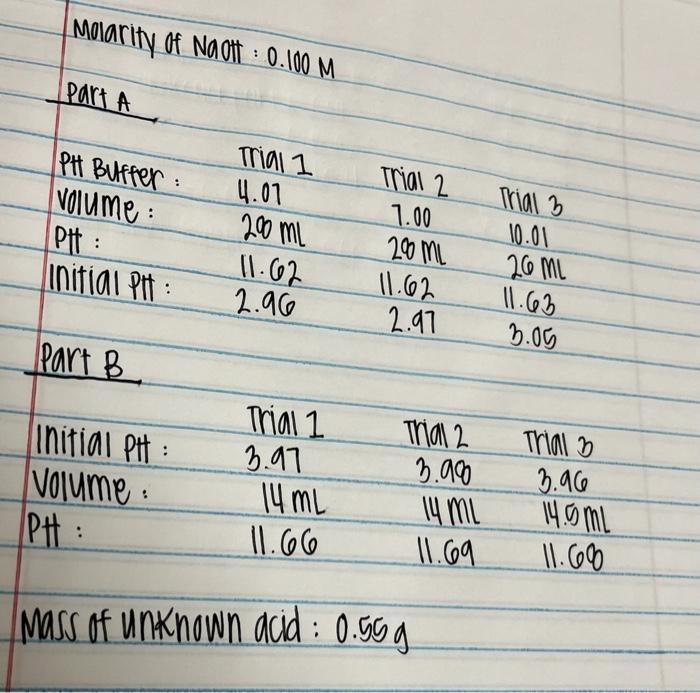 Molarity of NaOH : 0.100 M
Part A
Trial 1 Trial 2 Trial 3
PH Buffer : 4.01 7.00 10.01
Volume : 28 ml 28 ML 26 ML
PH : 11.62 11.62 11.63
Initial PH : 2.96 2.97 3.05
Part B
Trial 1 Trial 2 Trial 3
Initial PH : 3.97 3.98 3.96
Volume : 14 mL 14 ML 14.5 mL
PH : 11.66 11.69 11.68
Mass of unknown acid : 0.55 g